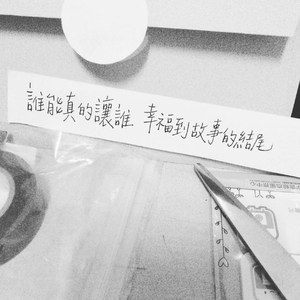 誰能真的讓誰 幸福到故事的結尾